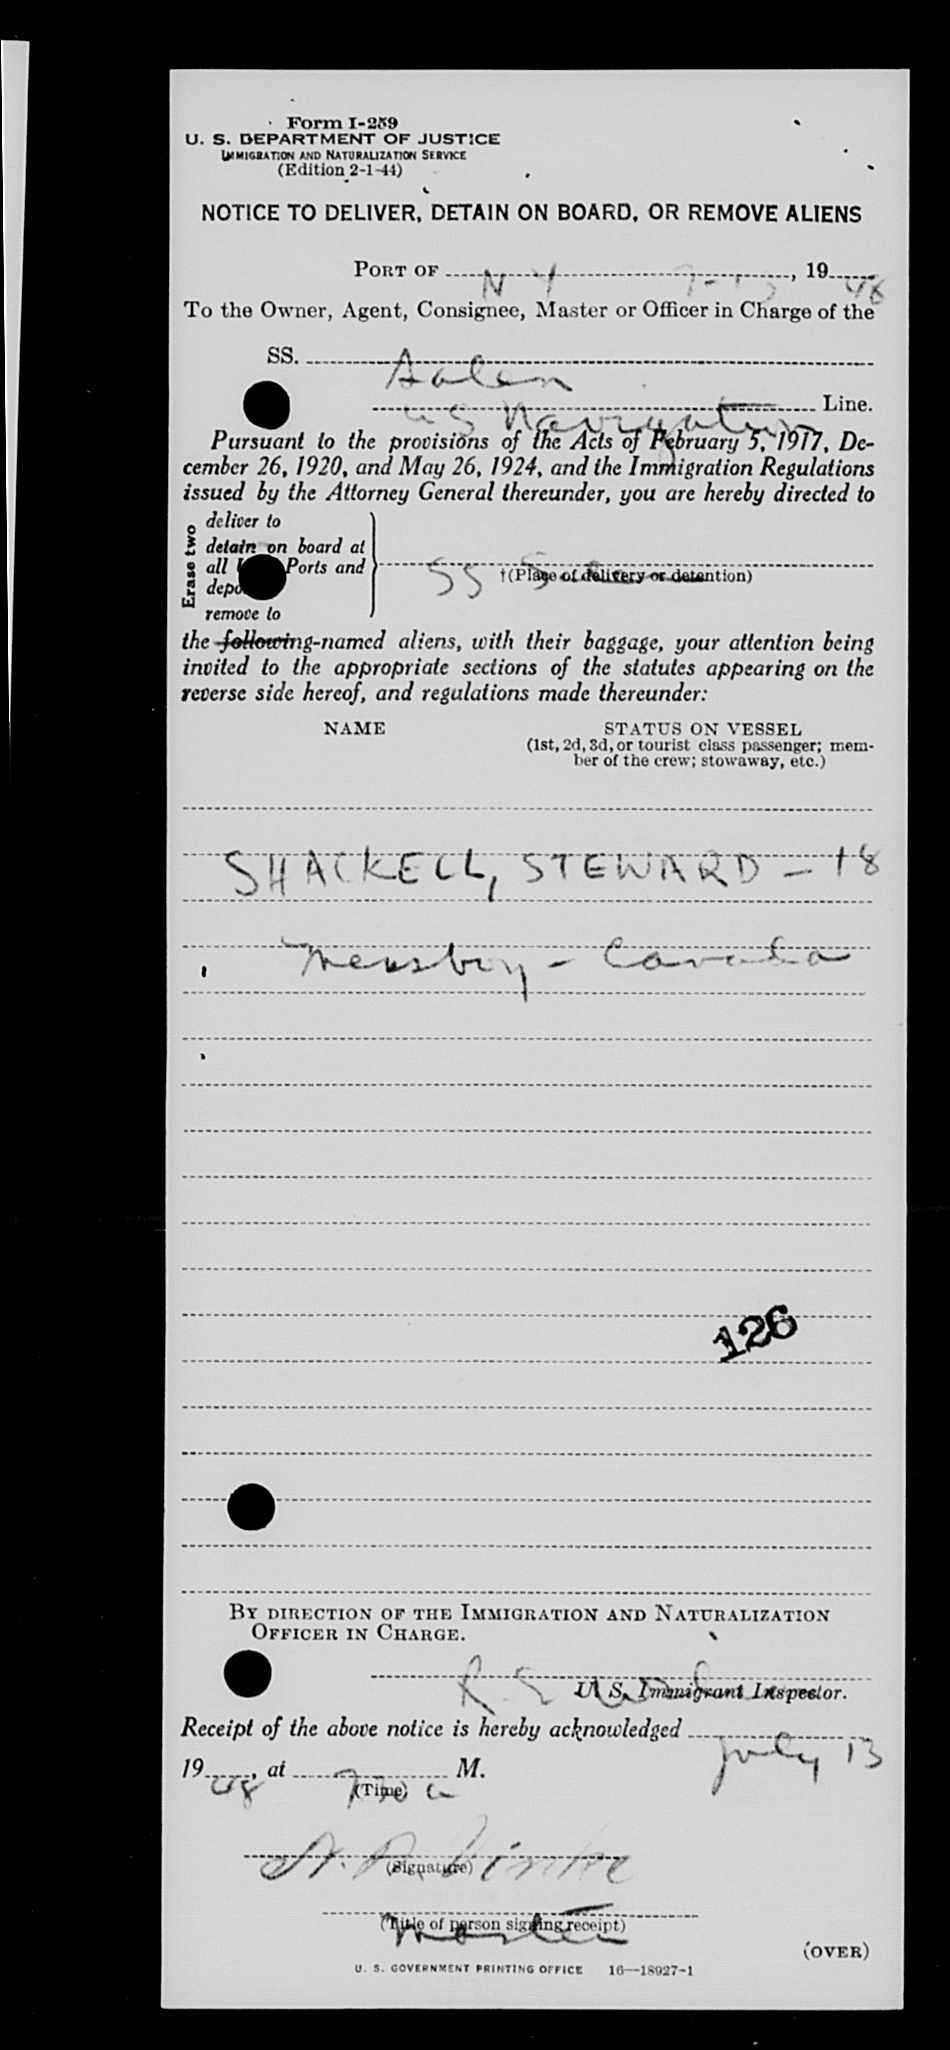 Form I-259
U. S. DEPARTMENT OF JUSTICE
IMMIGRATION AND NATURALIZATION SERVICE
(Edition 2-1-44)
NOTICE TO DELIVER, DETAIN ON BOARD, OR REMOVE ALIENS
PORT OF N Y, 1948
To the Owner, Agent, Consignee, Master or Officer in Charge of the
SS. Aalen
US Navigation Line.
Pursuant to the provisions of the Acts of February 5, 1917, De-
cember 26, 1920, and May 26, 1924, and the Immigration Regulations
issued by the Attorney General thereunder, you are hereby directed to
Erase two
deliver to
detain on board at
all Ports and
remove to
SS
†(Place of delivery or detention)
the following-named aliens, with their baggage, your attention being
invited to the appropriate sections of the statutes appearing on the
reverse side hereof, and regulations made thereunder:
NAME STATUS ON VESSEL
(1st, 2d, 3d, or tourist class passenger; mem-
ber of the crew; stowaway, etc.)
SHACKELL, STEWARD - 18
Messboy - Canada
126
BY DIRECTION OF THE IMMIGRATION AND NATURALIZATION
OFFICER IN CHARGE.
U. S. Immigrant Inspector.
Receipt of the above notice is hereby acknowledged July 13
1948, at 730 a M.
(Time)
(Signature)
Master
(Title of person signing receipt)
(OVER)
U. S. GOVERNMENT PRINTING OFFICE 16—18927-1